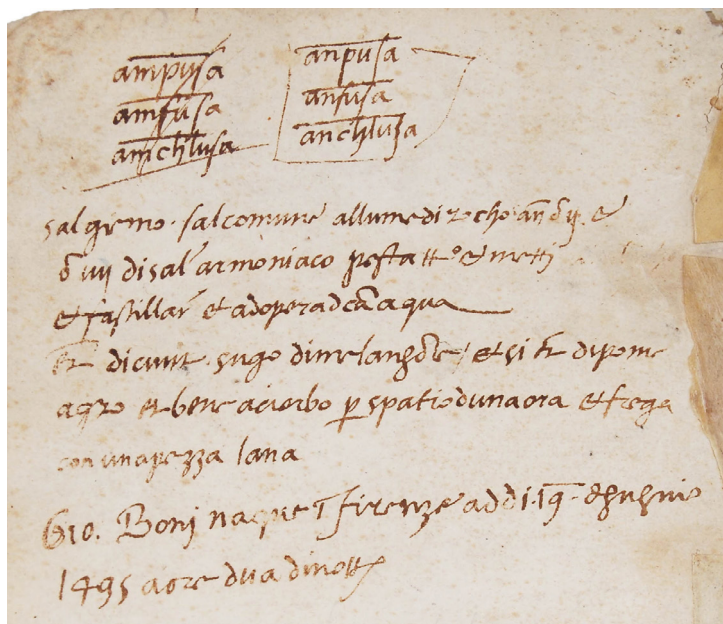 ampusa
amfusa
amchlusa
anpusa
anfusa
anchlusa
sal gemo. sal comune allume di rocho an
di sal armoniaco pesta tto et metti
et fa stillar et adopera dca aqua
Et dicunt sugo di melanghole, et si et di pome
agro et bene acierbo p spatio duna ora et frega
con una pezza lana
Gio. Bonj nacque firenze addi 19
1495 a ore dua di notte